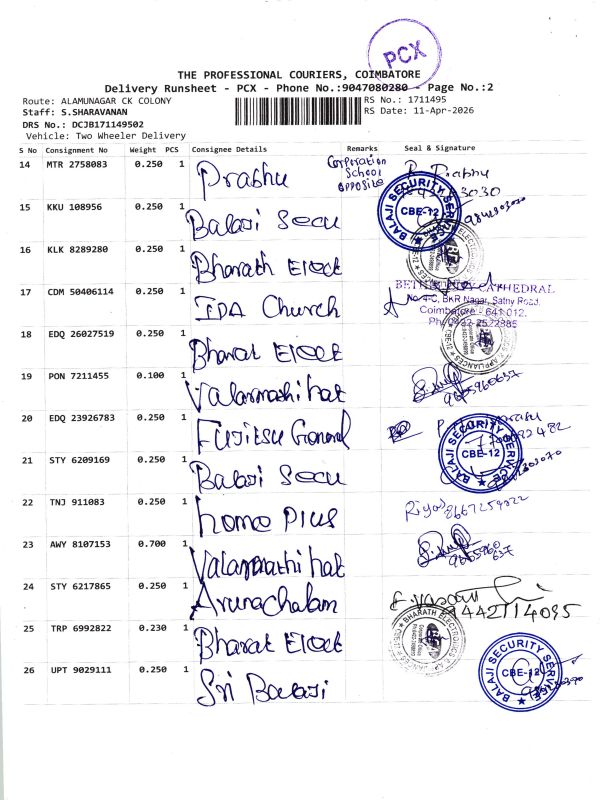 PCX
THE PROFESSIONAL COURIERS, COIMBATORE
Delivery Runsheet - PCX - Phone No.:9047080280 - Page No.:2
Route: ALAMUNAGAR CK COLONY
RS No.: 1711495
Staff: S.SHARAVANAN
RS Date: 11-Apr-2026
DRS No.: DCJB171149502
Vehicle: Two Wheeler Delivery
S No Consignment No Weight PCS Consignee Details Remarks Seal & Signature
14 MTR 2758083 0.250 1 Prabhu Corporation School opposite
15 KKU 108956 0.250 1 Balaji Secu BALAJI SECURITY SERVICE CBE-12
16 KLK 8289280 0.250 1 Bharath Elect
17 CDM 50406114 0.250 1 IDA Church CATHEDRAL
No.4-C, BKR Nagar, Sathy Road,
Coimbatore - 641 012.
18 EDQ 26027519 0.250 1 Bharat Elect
19 PON 7211455 0.100 1 Valarmathi hat
20 EDQ 23926783 0.250 1 Fujitsu General
21 STY 6209169 0.250 1 Balaji Secu BALAJI SECURITY SERVICE CBE-12
22 TNJ 911083 0.250 1 home Plus Riyas 8667259222
23 AWY 8107153 0.700 1 Valarmathi hat
24 STY 6217865 0.250 1 Arunachalam 9442714095
25 TRP 6992822 0.230 1 Bharat Elect BHARATH ELECTRONICS
26 UPT 9029111 0.250 1 Sri Balaji BALAJI SECURITY SERVICE CBE-12